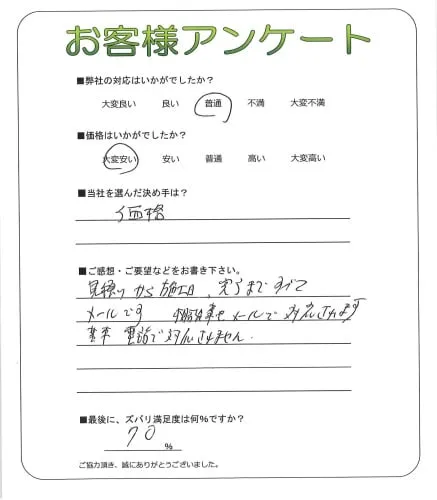 お客様アンケート
■弊社の対応はいかがでしたか？
大変良い 良い 普通 不満 大変不満
■価格はいかがでしたか？
大変安い 安い 普通 高い 大変高い
■当社を選んだ決め手は？
価格
■ご感想・ご要望などをお書き下さい。
見積りから施工日、完了まですべて
メールです メールで対応されます
電話で対応されません.
■最後に、ズバリ満足度は何％ですか？
70
％
ご協力頂き、誠にありがとうございました。